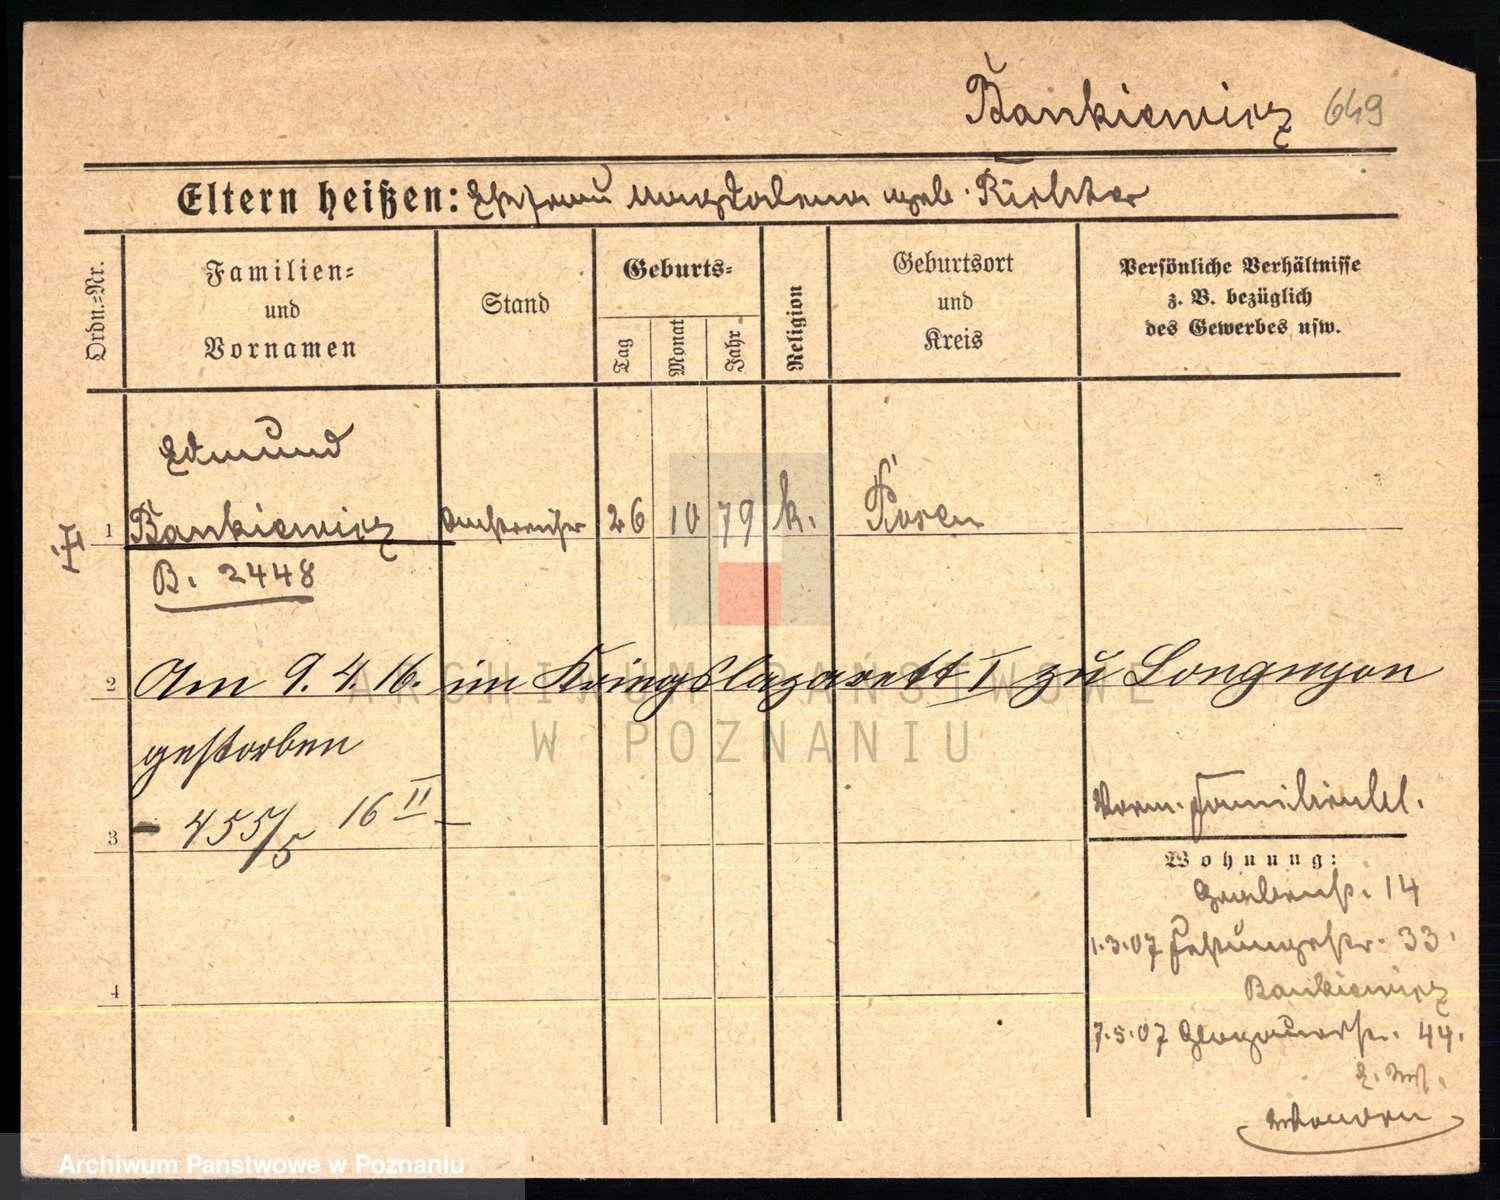 Bankiewicz 649
Eltern heißen: Ehefrau Magdalena geb. Richter
Ordn.=Nr.
Familien=
und
Vornamen
Stand
Geburts=
Tag
Monat
Jahr
Religion
Geburtsort
und
Kreis
Persönliche Verhältnisse
z. B. bezüglich
des Gewerbes usw.
Edmund
1 Bankiewicz Anstreicher 26 10 79 k. Posen
B. 2448
2 Am 9. 4. 16. im Kriegslazarett I zu Longuyon
gestorben
3 - 455/5 16 II -
Vorm. Familienbl.
Wohnung:
Grabenstr. 14
1.3.07 Festungsstr. 33.
Bankiewicz
4
7.5.07 Glogauerstr. 44.
ARCHIWUM PAŃSTWOWE
W POZNANIU
Archiwum Państwowe w Poznaniu